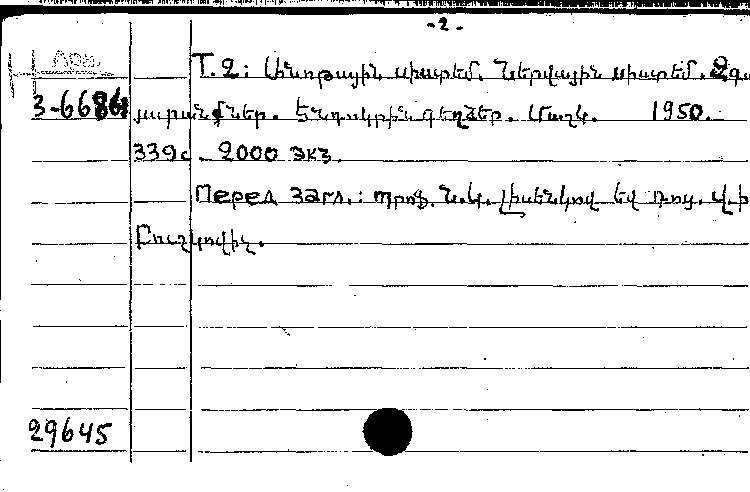 - 2 -
Т. 2: Անոթային սիստեմ. Ներվային սիստեմ. Զգա
3-6686 յարաններ. Ենդոկրին գեղձեր. Մաշկ. 1950.
339с. 2000 экз.
Перед загл.: պրոֆ. Ն.Կ. Լիսենկով եվ դոց. Վ.Ի
Բուշկովիչ.
29645